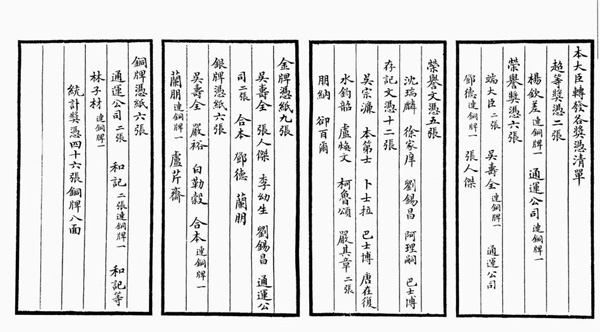 本大臣轉發各獎憑清單
超等獎憑二張
楊欽差連銅牌一 通運公司連銅牌一
榮譽獎憑六張
端大臣二張 吳壽全連銅牌一 通運公司
鄧德連銅牌一 張人傑
榮譽文憑五張
沈瑞麟 徐家庠 劉錫昌 阿理嗣 巴士博
存記文憑十二張
吳宗濂 本第士 卜士拉 巴士博 唐在復
水鈞韶 盧煥文 柯魯頌 嚴其章二張
朋納 卲百爾
金牌憑紙九張
吳壽全 張人傑 李幼生 劉錫昌 通運公
司二張 合本 鄧德 蘭朋
銀牌憑紙六張
吳壽全 嚴裕 白勒穀 合本連銅牌一
蘭朋連銅牌一 盧芹齋
銅牌憑紙六張
通運公司二張 和記二張連銅牌一 和記等
林子材連銅牌一
統計獎憑四十六張銅牌八面